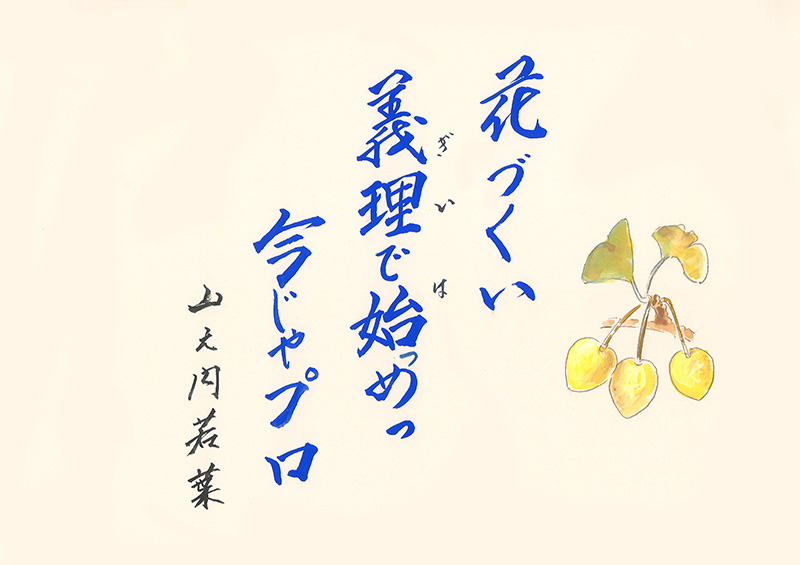 花づくい
義理で始っめっ
ぎいは
今じゃプロ
山之内若葉